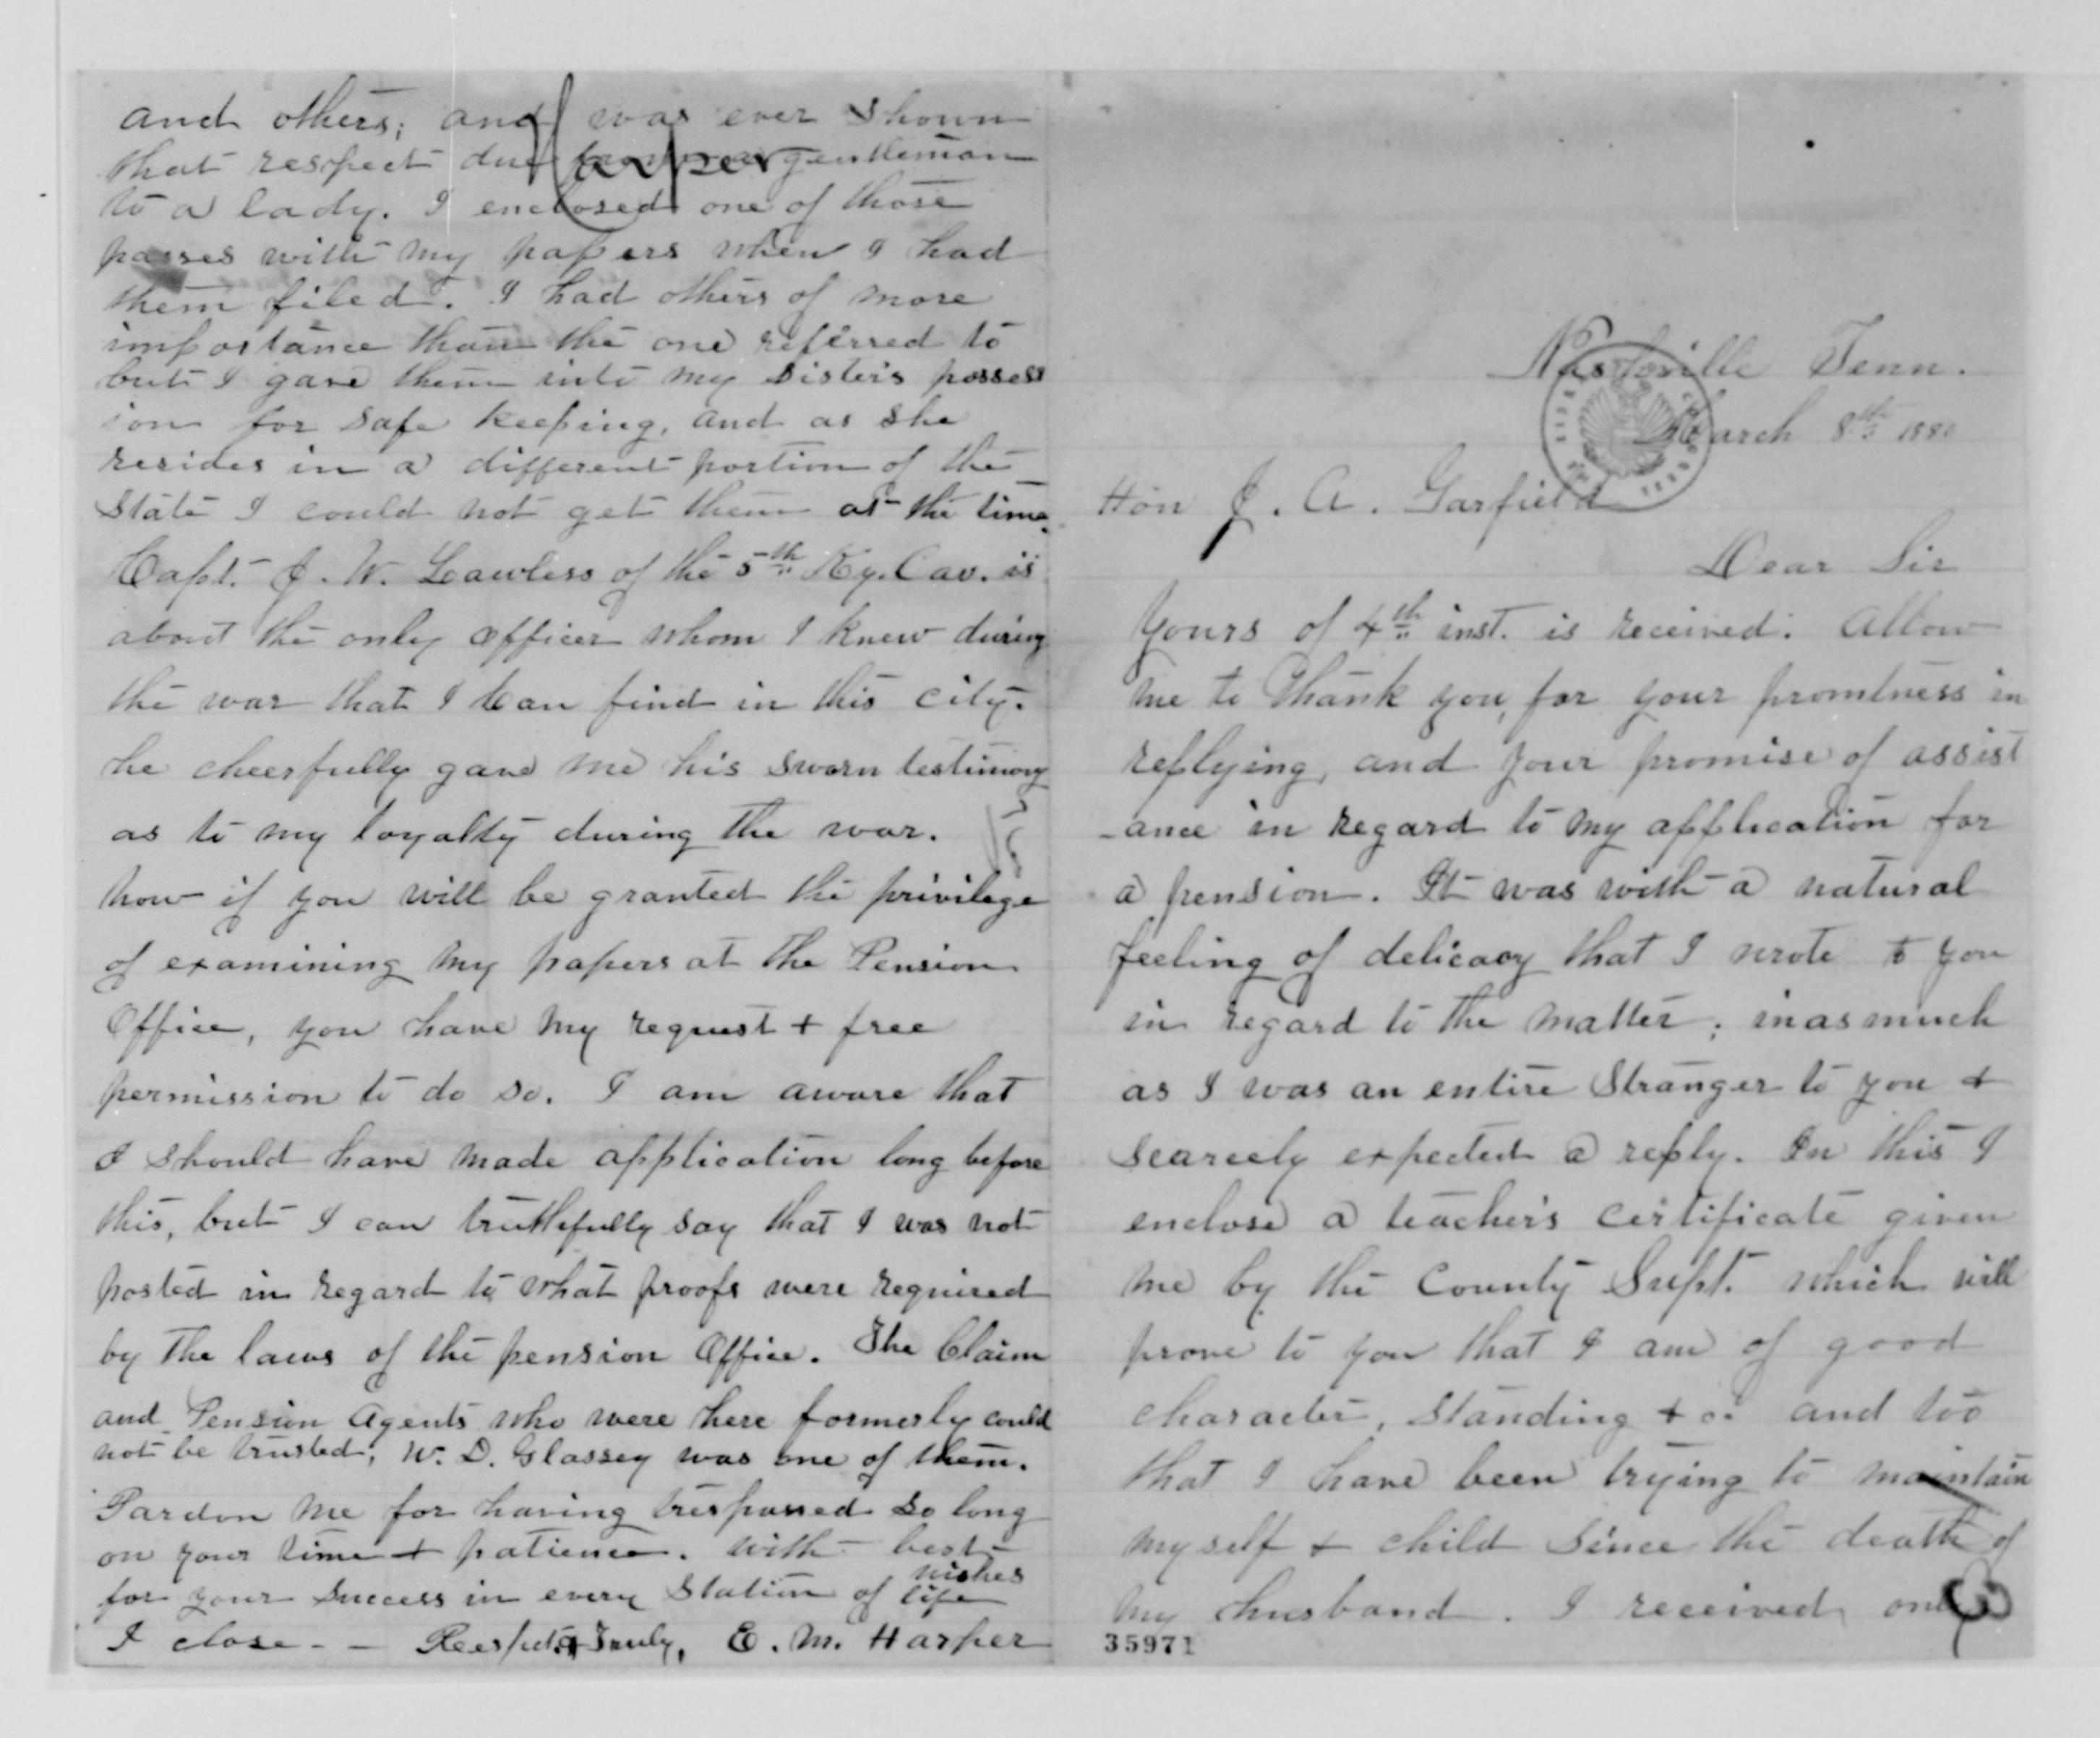 Nashville Tenn.
March 8th 1880
Hon J. A. Garfield
Dear Sir
Yours of 4th inst. is received. Allow
me to thank you, for your promtness in
replying, and your promise of assist
-ance in regard to my application for
a pension. It was with a natural
feeling of delicacy that I wrote to you
in regard to the matter; inasmuch
as I was an entire Stranger to you +
scarcely expected a reply. In this I
enclose a teacher's certificate given
me by the County Supt. which will
prove to you that I am of good
character, standing + c. and too
that I have been trying to maintain
myself + child since the death of
my husband. I received only
35971
and others; and was ever shown
that respect due from a gentleman
Harper
to a lady. I enclosed one of those
passes with my papers when I had
them filed. I had others of more
importance than the one referred to
but I gave them into my sister's possess
ion for safe keeping, and as she
resides in a different portion of the
State I could not get them at the time.
Capt. J. W. Lawless of the 5th Ky. Cav. is
about the only officer whom I knew during
the war that I can find in this city.
he cheerfully gave me his sworn testimony
as to my loyalty during the war.
now if you will be granted the privilege
of examining my papers at the Pension
Office, you have my request + free
permission to do so. I am aware that
I should have made application long before
this, but I can truthfully say that I was not
posted in regard to what proofs were required
by the laws of the pension Office. The Claim
and Pension Agents who were here formerly could
not be trusted; W. D. Glassey was one of them.
Pardon me for having trespassed so long
on your time + patience. With best
wishes
for your success in every Station of life
I close. - Respect. + Truly, E. M. Harper